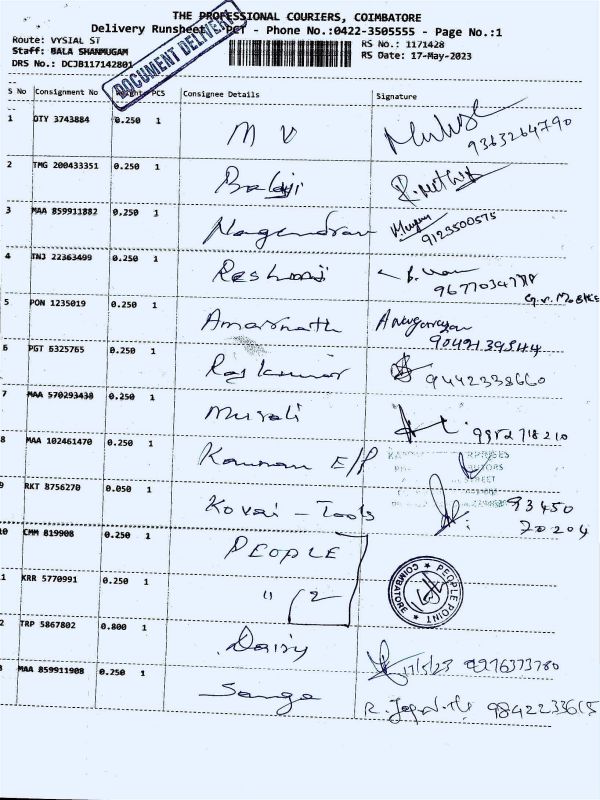 THE PROFESSIONAL COURIERS, COIMBATORE
Delivery Runsheet - PCT - Phone No.:0422-3505555 - Page No.:1
Route: VYSIAL ST
RS No.: 1171428
Staff: BALA SHANMUGAM
RS Date: 17-May-2023
DRS No.: DCJB117142801
DOCUMENT DELIVERY
S No Consignment No PCS Consignee Details Signature
1 OTY 3743884 0.250 1 M V
9363264790
2 TMG 200433351 0.250 1 Balaji
3 MAA 859911882 0.250 1 Nagendran
9123500575
4 TNJ 22363499 0.250 1 Reshmi
5 PON 1235019 0.250 1 Amarnath
6 PGT 6325765 0.250 1 Rajkumar 9442338660
7 MAA 570293438 0.250 1 Murali
9952718210
8 MAA 102461470 0.250 1 Kannan E/P
9 RKT 8756270 0.050 1 Kovai - Tools 93450
70204
10 CMM 819908 0.250 1 PEOPLE
PEOPLE POINT ★ COIMBATORE ★
1 KRR 5770991 0.250 1 " 2
2 TRP 5867802 0.800 1 Daisy 17/5/23
3 MAA 859911908 0.250 1 Sanga 9842233615